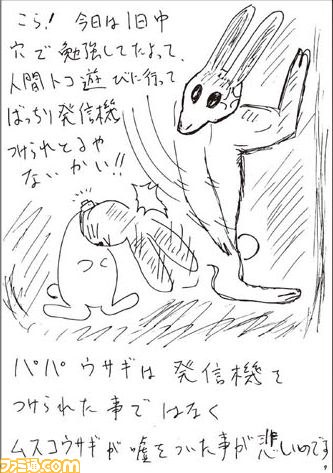 こら! 今日は1日中
穴で勉強してたよって、
人間トコ遊びに行って
ばっちり発信機
つけられとるや
ないかい!!
つく
パパウサギは発信機を
つけられた事ではなく
ムスコウサギが嘘をついた事が悲しいのです
ファミ通.com